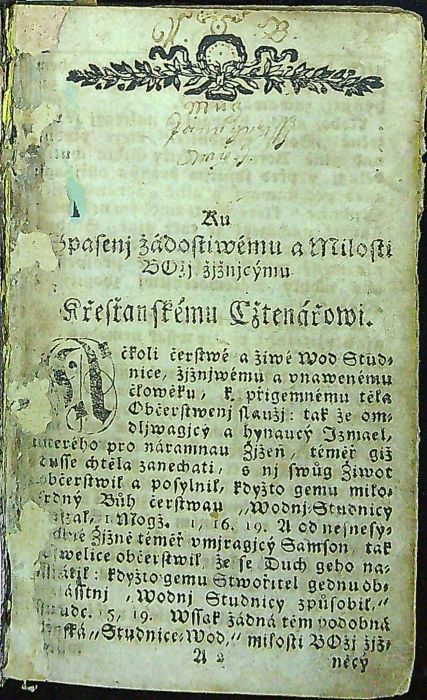 Ku
Spasenj žádostiwému a Milosti
BOžj žjžnjcýmu
Křesťanskému Cžtenářowi.
Ačkoli čerstwé a žiwé Wod Stud-
nice, žjžnjwému a vnawenému
čkowěku, k přigemnému těla
Občerstwenj slaužj: tak že om-
dljwagjcý a hynaucý Izmael,
kterého pro náramnau Žjžeň, téměř giž
dusse chtěla zanechati, s nj swůg Žiwot
občerstwil a posylnil, kdyžto gemu milo-
srdný Bůh čerstwau „Wodnj Studnicy
1. Mogž. 1, 16. 19. A od nesnesy-
Žjžně téměř vmjragjcý Samson, tak
welice občerstwil, že se Duch geho na-
kdyžto gemu Stwořitel gednu ob-
Wodnj Studnicy způsobil,"
Saudc. 15, 19. Wssak žádná tém podobná
„Studnice-Wod," milosti BOžj žjž-
A 2 něcý